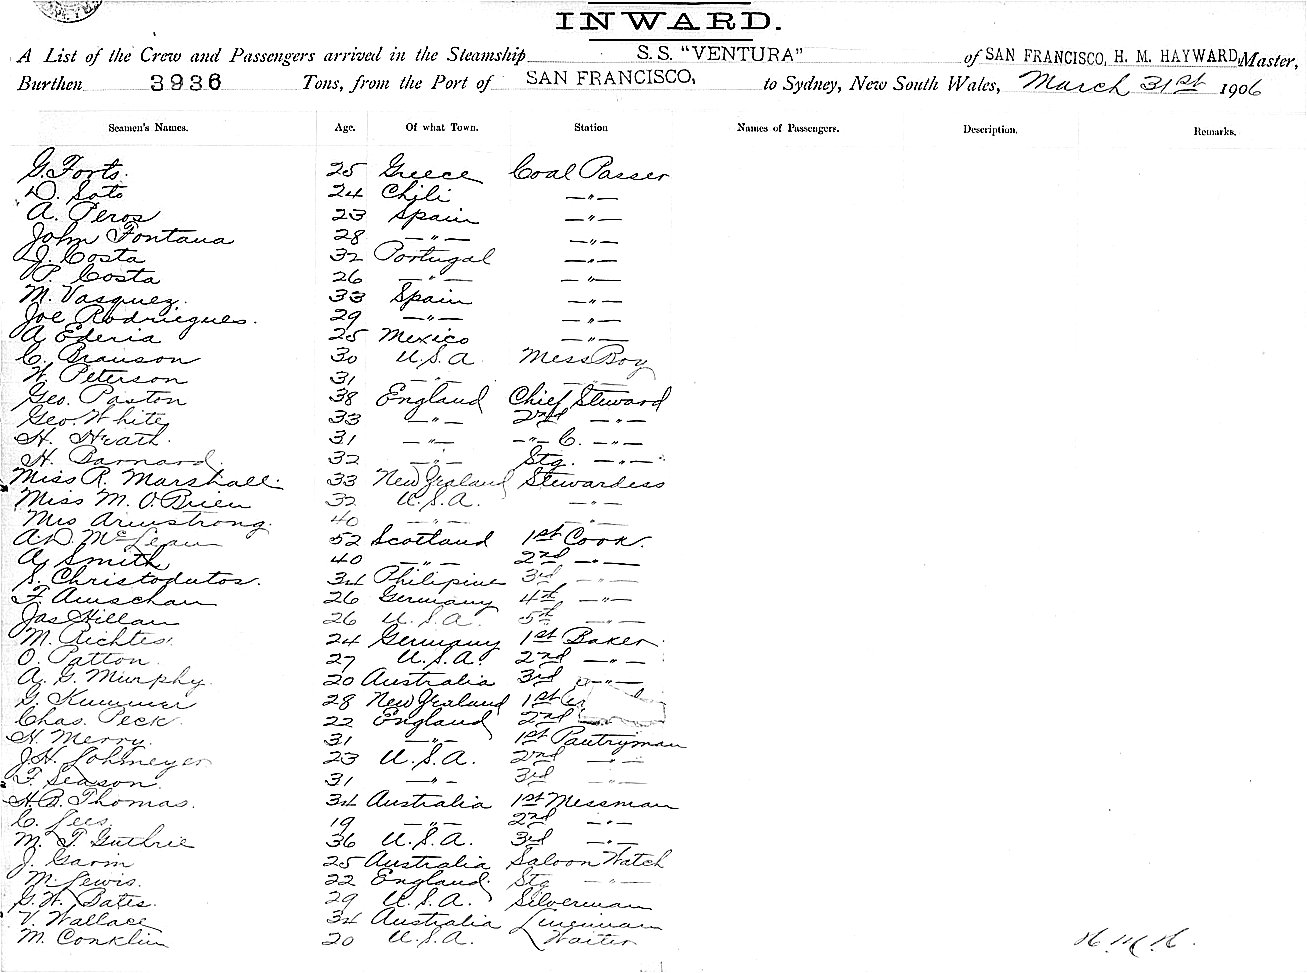 INWARD.
A List of the Crew and Passengers arrived in the Steamship S.S. "VENTURA" of SAN FRANCISCO, H. M. HAYWARD, Master,
Burthen 3936 Tons, from the Port of SAN FRANCISCO, to Sydney, New South Wales, March 31st 1906
Seamen's Names. Age. Of what Town. Station Names of Passengers. Description. Remarks.
G. Forts. 25 Greece Coal Passer
D. Soto 24 Chili —"—
A. Peros 23 Spain —"—
John Fontana 28 —"— —"—
J. Costa 32 Portugal —"—
P. Costa 26 —"— —"—
M. Vasquez. 33 Spain —"—
Joe Rodriegues. 29 —"— —"—
A Ederia 25 Mexico —"—
C. Branson 30 U.S.A. Mess Boy
W. Peterson 31 —"— —"—
Geo. Paston 38 England Chief Steward
Geo. White 33 —"— 2nd —"—
H. Heath. 31 —"— —"— C. —"—
H. Barnard. 32 —"— Stg. —"—
Miss R. Marshall. 33 New Zealand Stewardess
Miss M. O'Brien 32 U.S.A. —"—
Mrs Armstrong. 40 —"— —"—
A.D. McLean 52 Scotland 1st Cook.
A. Smith 40 —"— 2nd —"—
S. Christodutos. 34 Philipine 3rd —"—
F. Amschan 26 Germany 4th —"—
Jas Hillan 26 U.S.A. 5th —"—
M. Richtes. 24 Germany 1st Baker.
O. Patton. 27 U.S.A. 2nd —"—
A. G. Murphy. 20 Australia 3rd —"—
G. Kummer 28 New Zealand 1st
Chas. Peck. 22 England 2nd
H. Merry. 31 —"— 1st Pantryman
J.H. Lohmeyer 23 U.S.A. 2nd —"—
F. Season. 31 —"— 3rd —"—
H.B. Thomas. 34 Australia 1st Messman
C. Lees. 19 —"— 2nd —"—
M. T. Guthrie 36 U.S.A. 3rd —"—
J. Garin 25 Australia Saloon Watch
M. Lewis. 22 England. Stg —"—
G.W. Bates. 29 U.S.A. Silverman
V. Wallace 34 Australia Linenman
M. Conklin 20 U.S.A. Waiter
H M H.